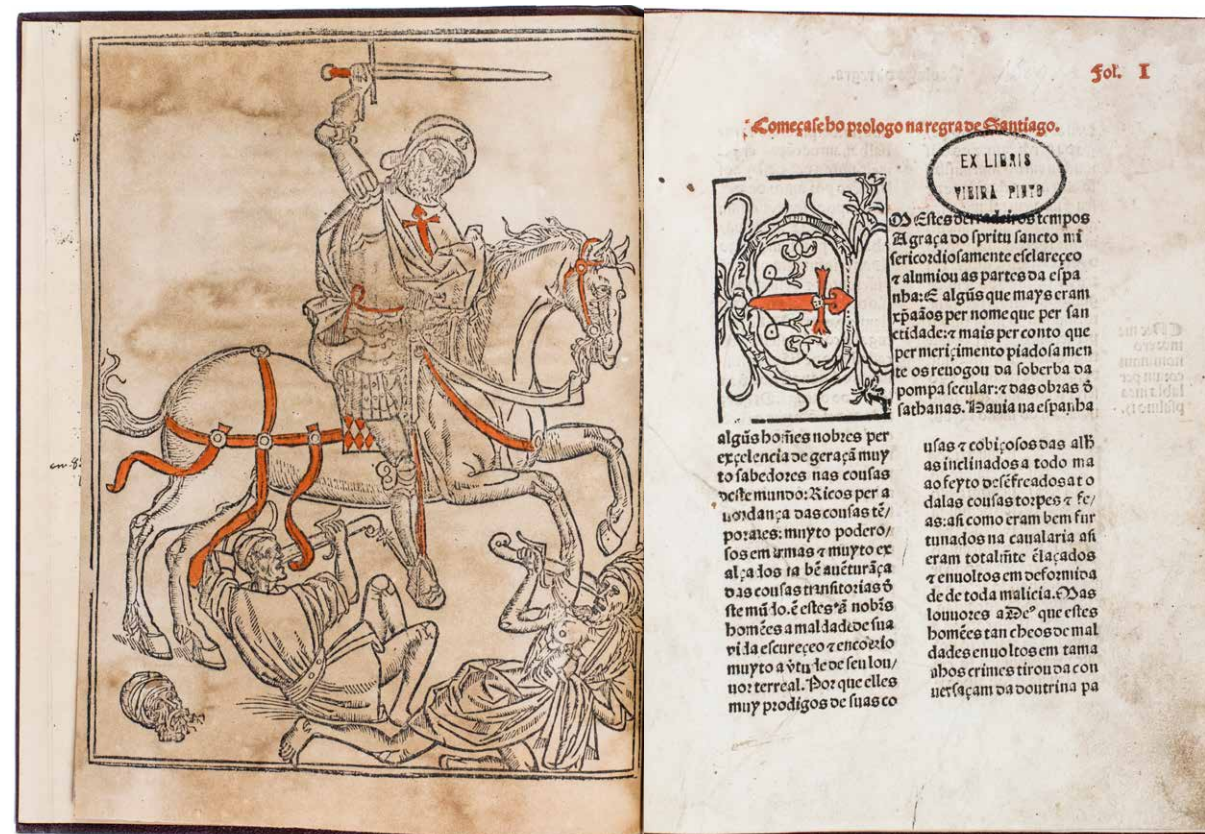 Fol. I
Começase ho prologo na regra de Santiago.
EX LIBRIS
VIEIRA PINTO
M Estes derradeiros tempos
A graça do spritu sancto mi
sericordiosamente esclareçeo
⁊ alumiou as partes da espa
nha: E algũs que mays eram
xp̃aãos per nome que per san
ctidade: ⁊ mais per conto que
per meriçimento piadosa men
te os reuogou da soberba da
pompa secular: ⁊ das obras d̕
sathanas. Hauia na espanha
algũs homẽs nobres per
exçelencia de geraçã muy
to sabedores nas cousas
deste mundo: Ricos per a
uondança das cousas tẽ/
poraes: muyto podero/
sos em armas ⁊ muyto ex
alçados na bẽ auẽturãça
das cousas transitorias d̕
ste mũdo. ẽ estes tã nobẽs
homẽes a maldade de sua
vida escureçeo ⁊
muyto a v̓tude de seu lou/
uor terreal. Por que elles
muy prodigos de suas co
usas ⁊ cobiçosos das alh̃
as inclinados a todo ma
ao feyto desẽfreados a to
dalas cousas torpes ⁊ fe/
as: asi como eram bem fur
tunados na caualaria asi
eram totalmẽte ẽlaçados
⁊ enuoltos em deformida
de de toda malicia. Mas
louuores a De⁹ que estes
homẽes tan cheos de mal
dades enuoltos em tama
nhos crimes tirou da con
uersaçam da doutrina pa